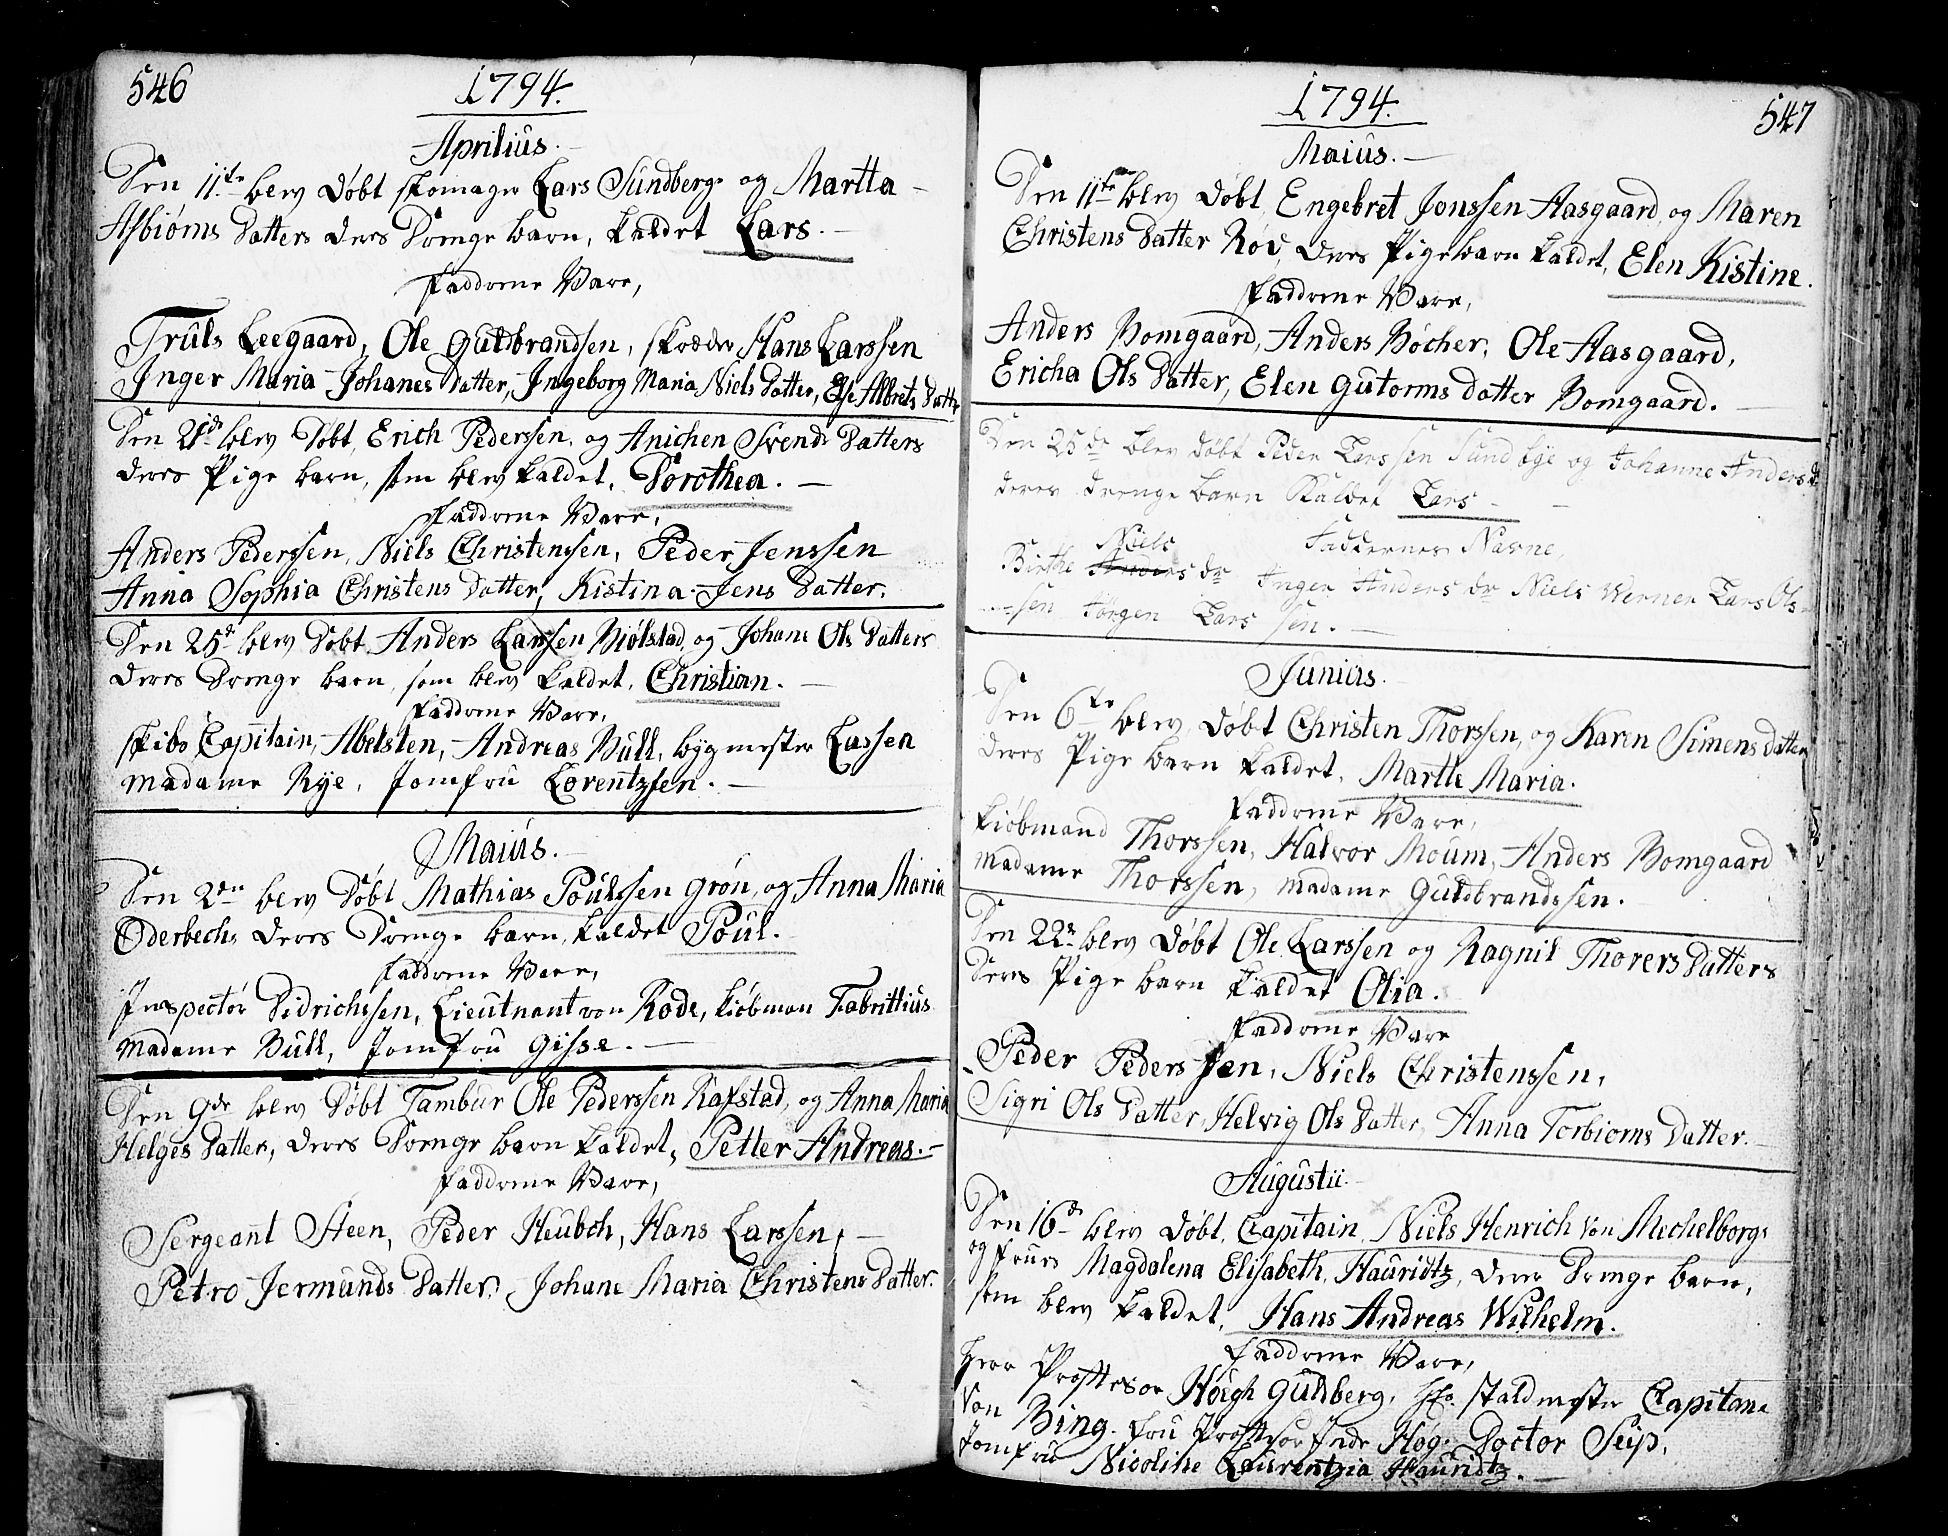 546
1794.
Aprilius.
Den 11te blev Døbt skomager Lars Sundberg og Martta
Asbiørns Datters deres Drenge barn, kaldet Lars.
Faddrene Vare,
Truls Leegaard, Ole Guldbrandsen, skræder Hans Larssen
Inger Maria Johanes Datter, Ingeborg Maria Niels Datter, Else Albrets Datter
Den 21de blev Døbt, Erich Pederssen, og Anichen Svends Datters
deres Pige barn, som blev kaldet, Dorothea.
Faddrene Vare,
Anders Pederssen, Niels Christenssen, Peder Jenssen
Anna Sophia Christens Datter, Kistina Jens Datter.
Den 25de blev Døbt Anders Larssen Biølstad, og Johane Ols Datters
deres Drenge barn, som blev kaldet, Christian.
Faddrene Vare,
skibs Capitain, Abelsten, Andreas Bull, bygmester Lassen
Madame Rye, Jomfru Lorentzsen.
Maius.
Den 2den blev Døbt Mathias Poulssen Grøn, og Anna Maria
Oderbech, deres Drenge barn, kaldet Poul.
Faddrene Vare,
Inspectør Didrichssen, Lieutnant von Rode, kiøbman Fabrittius
Madame Bull, Jomfru Gisse.
Den 9de blev Døbt Tambur Ole Pederssen Rafstad, og Anna Maria
Helges Datter, deres Drenge barn kaldet, Petter Andreas.
Faddrene Vare,
Sergeant Steen, Peder Heubch, Hans Larssen,
Petro Jermunds Datter, Johane Maria Christens Datter.
547
1794.
Maius.
Den 11te blev Døbt, Engebret Jonssen Aasgaard, og Maren
Christens Datter Røv, deres Pige barn kaldet, Elen Kistine.
Faddrene Vare,
Anders Bomgaard, Anders Bøcher, Ole Aasgaard,
Ericha Ols Datter, Elen Gutorms Datter Bomgaard.
Den 25de blev døbt Peder Larssen Sundbye og Johanne Anders dr
deres drenge barn Kaldet Lars
Faddernes Navne,
Niels
Birthe Anders dr Inger Anders dr Niels Werner Lars Ols-
-sen Jørgen Lars sen.
Junius.
Den 6te blev Døbt Christen Thorssen, og Karen Simens datter
deres Pige barn kaldet, Marthe Maria.
Faddrene Vare,
kiøbmand Thorssen, Halvor Moum, Anders Bomgaard
Madame Thorssen, Madame Guldbrandssen.
Den 22de blev Døbt Ole Larssen og Ragnil Thorers Datters
deres Pige barn kaldet Olia.
Faddrene Vare
Peder Pederssen, Niels Christenssen,
Sigri Ols Datter, Helvig Ols Datter, Anna Torbiørns Datter.
Augustii.
Den 16de blev Døbt, Capitain, Niels Henrich von Mechelborg
og frues Magdalena Elisabeth, Hauridtz, deres Drenge barn,
som blev kaldet, Hans Andreas Wilhelm.
Faddrene Vare,
Herr Proffesor Høigh Guldberg, Hr. staldmester Capitane
von Bing. fru Proffesor Inde Høg. Doctor Seip,
Jomfru Nicoline Laurentzia Hauridtz.